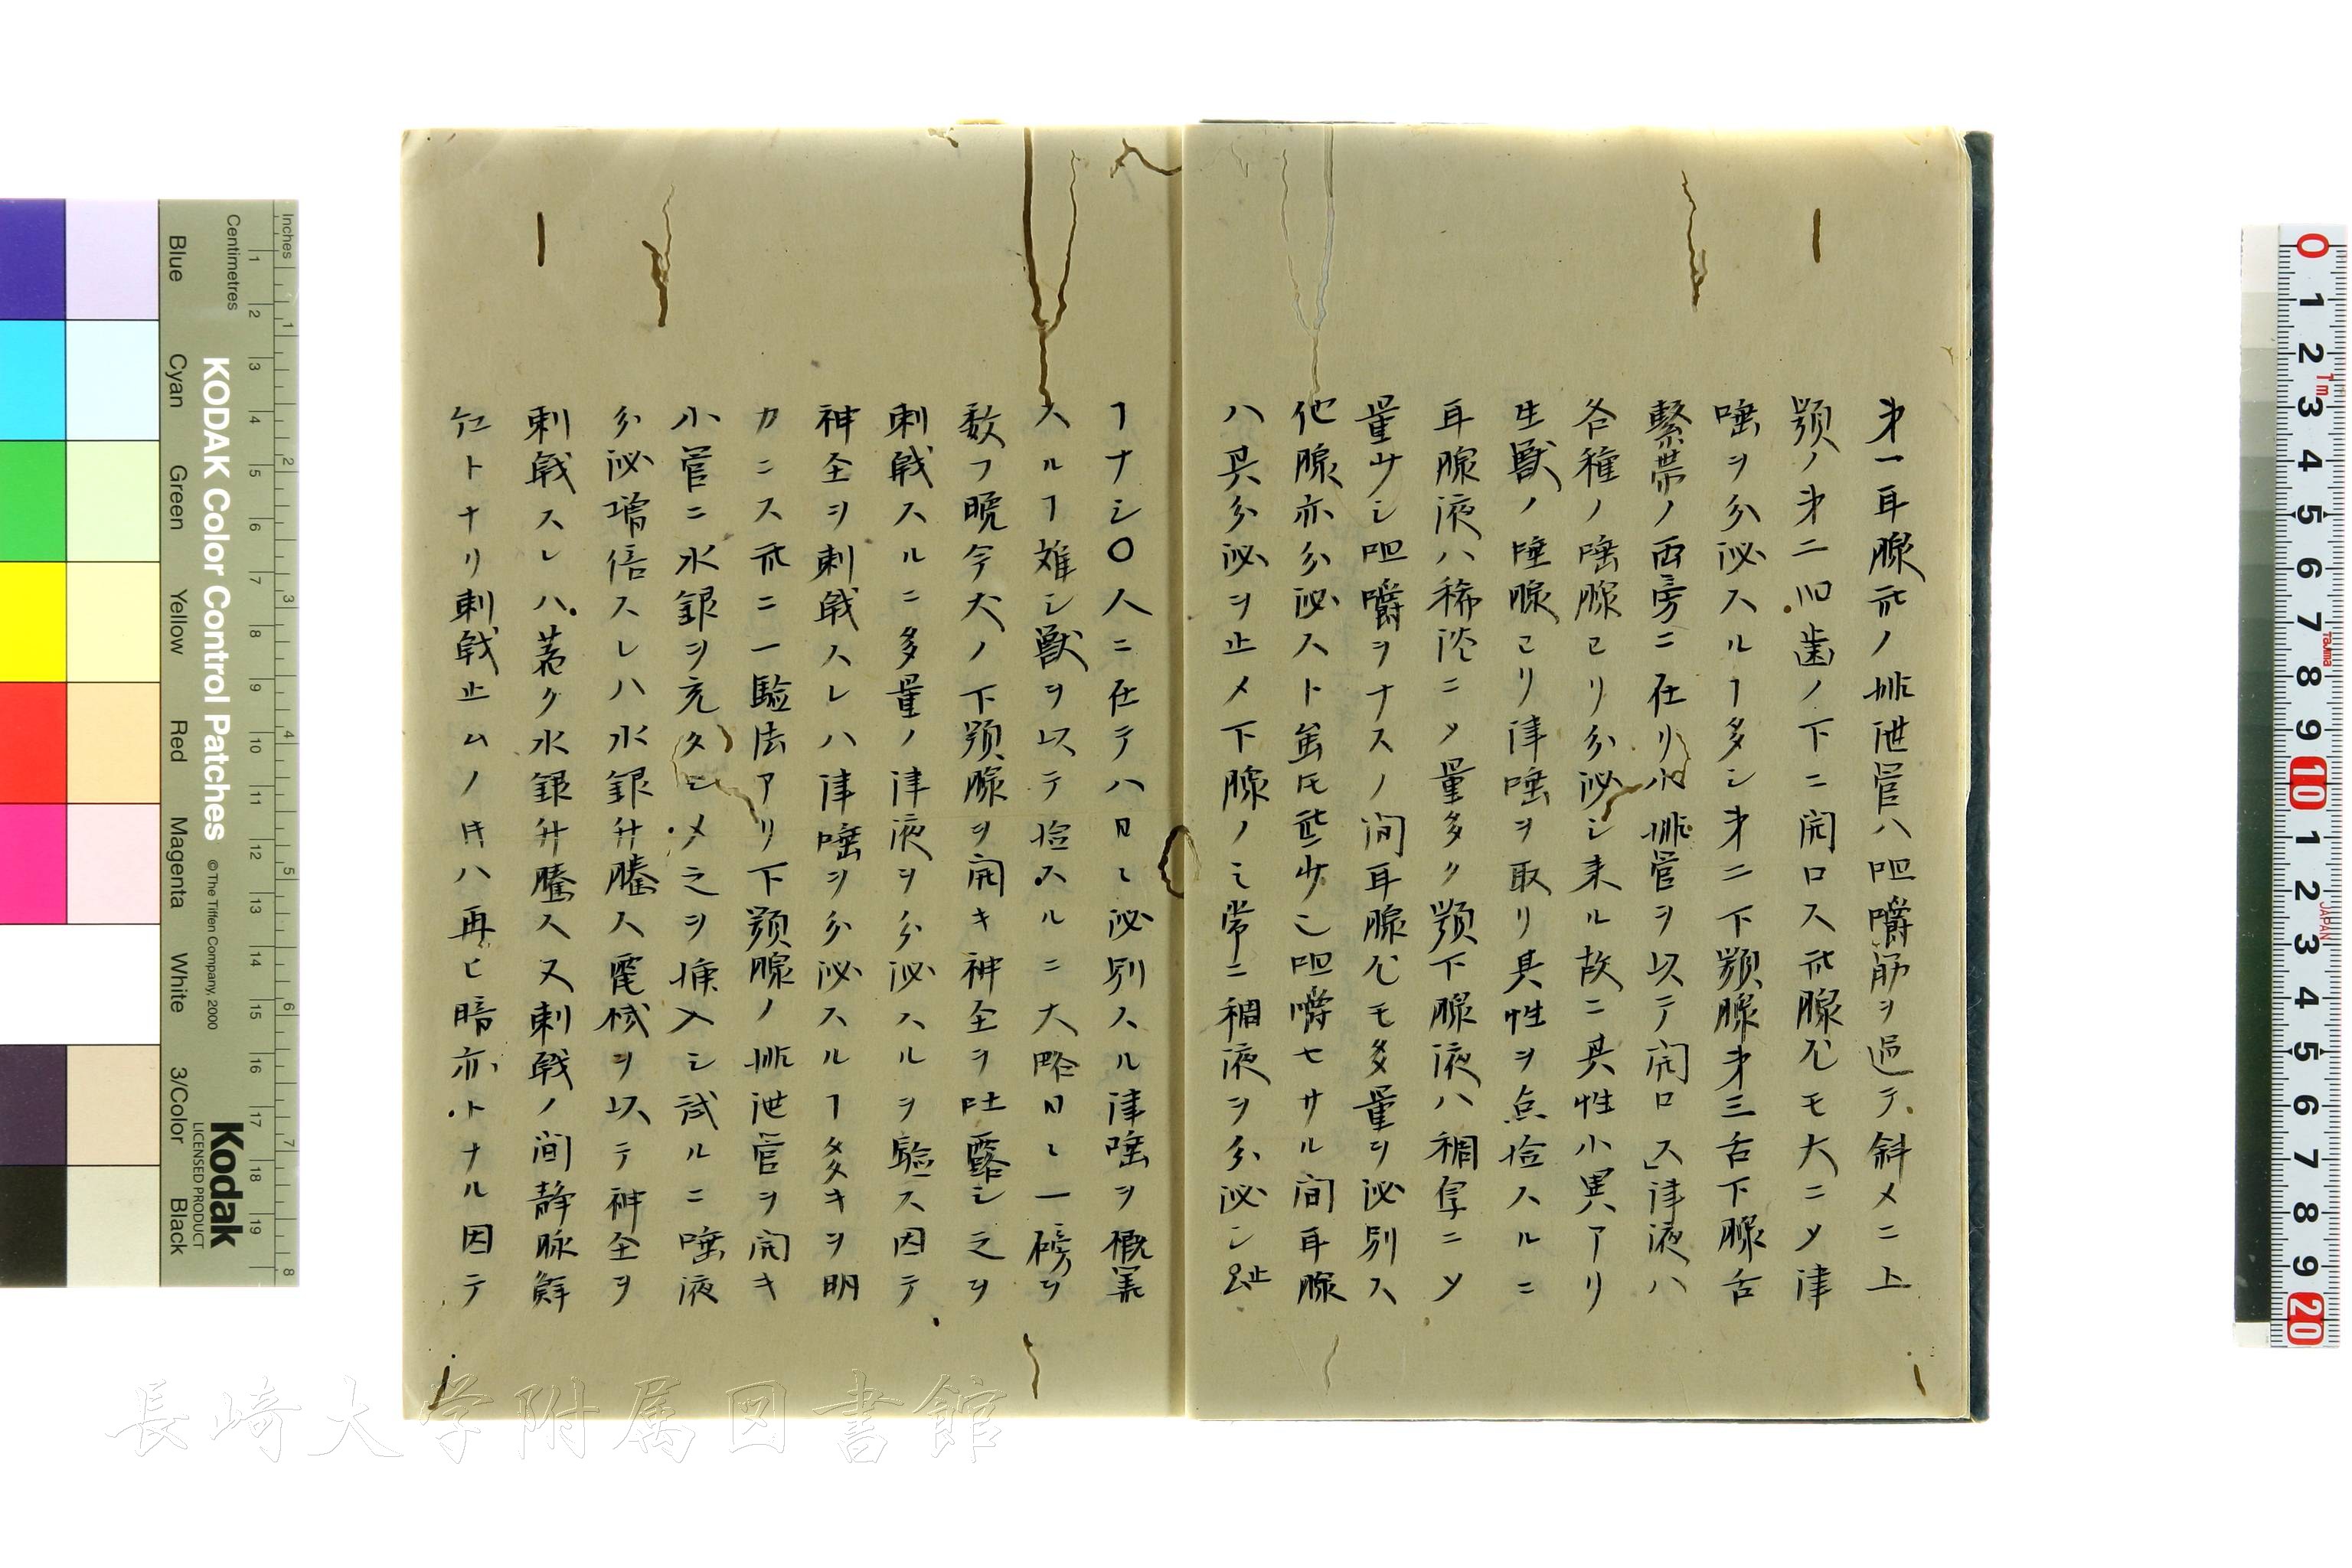 才一耳腺爪ノ排泄管ハ咀嚼筋ヲ過テ斜メニ上
顎ノ才二臼歯ノ下ニ開口ス爪腺尤モ大ニメ津
唾ヲ分泌スルヿ多シ才二下顎腺才三舌下腺舌
繫帯ノ両旁ニ在リ小排管ヲ以テ開口ス」津液ハ
各種ノ唾腺ヨリ分泌シ来ル故ニ其性小異アリ
生獣ノ唾腺ヨリ津唾ヲ取リ其性ヲ点撿スルニ
耳腺液ハ稀淡ニメ量多ク顎下腺液ハ稠厚ニメ
量少シ咀嚼ヲナスノ間耳腺尤モ多量ヲ泌別ス
他腺亦分泌スト虽𪜈些少シ咀嚼セサル間耳腺
ハ其分泌ヲ止メ下腺ノミ常ニ稠液ヲ分泌シ跐
ヿナシ〇人ニ在テハ日々泌別スル津唾ヲ概算
スルヿ難シ獣ヲ以テ撿スルニ大略日々一磅ヲ
数フ晩今犬ノ下顎腺ヲ開キ神全ヲ吐露シ之ヲ
刺戟スルニ多量ノ津液ヲ分泌スルヲ驗ス因テ
神全ヲ刺戟スレハ津唾ヲ分泌スルヿ多キヲ明
カニス爪ニ一驗法アリ下顎腺ノ排泄管ヲ開キ
小管ニ水銀ヲ充タシメ之ヲ揷入シ試ルニ唾液
分泌增倍スレハ水銀升騰ス電械ヲ以テ神全ヲ
刺戟スレハ著ク水銀升騰ス又刺戟ノ間静脉鮮
紅トナリ刺戟止ムノ時ハ再ヒ暗赤トナル因テ
Inches
Centimetres
KODAK Color Control Patches
© The Tiffen Company, 2000
Kodak
LICENSED PRODUCT
Blue
Cyan
Green
Yellow
Red
Magenta
White
3/Color
Black
長崎大学附属図書館